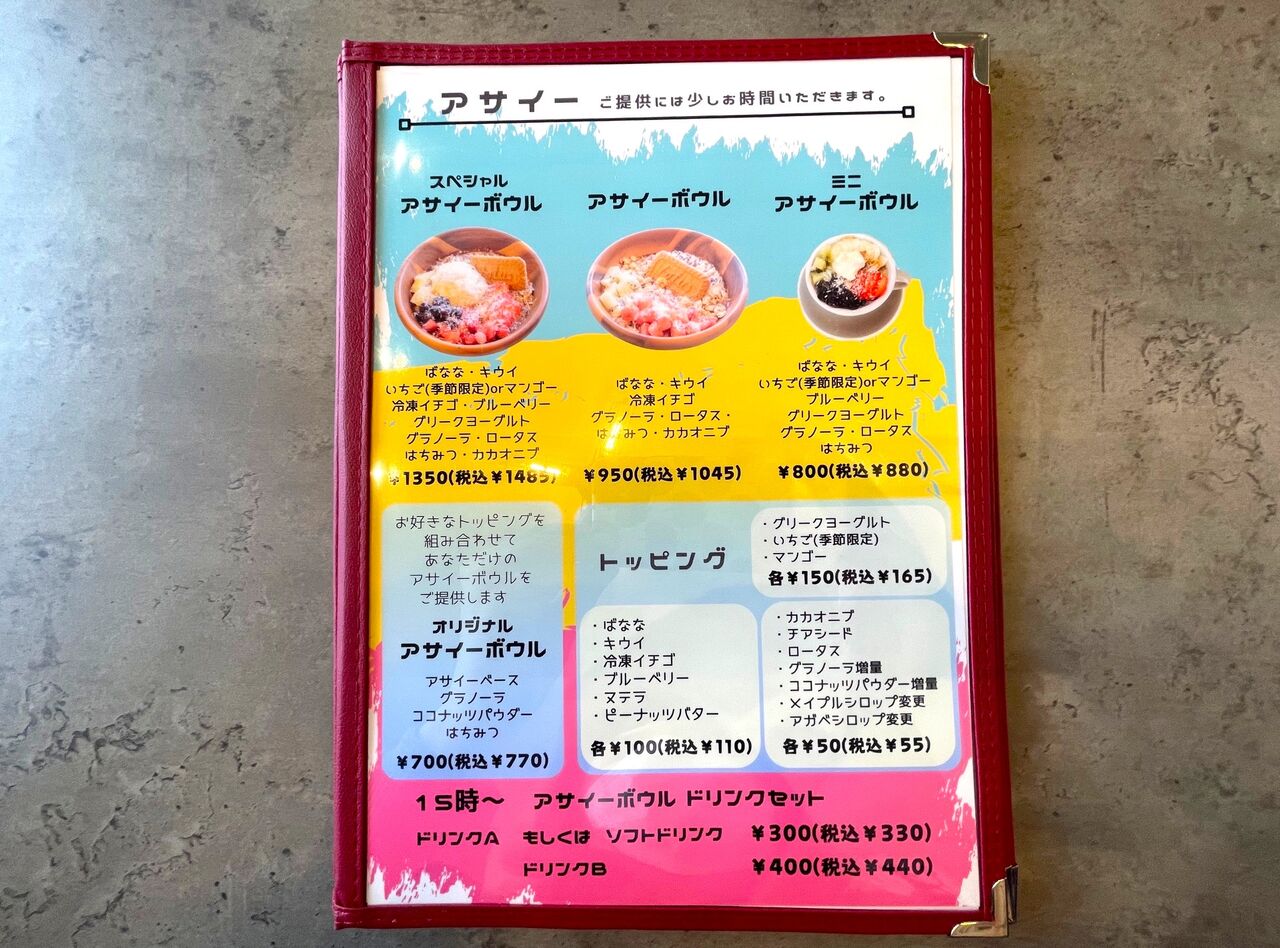 アサイー ご提供には少しお時間いただきます。
スペシャル
アサイーボウル
ばなな・キウイ
いちご(季節限定)orマンゴー
冷凍イチゴ・ブルーベリー
グリークヨーグルト
グラノーラ・ロータス
はちみつ・カカオニブ
¥1350(税込¥1485)
アサイーボウル
ばなな・キウイ
冷凍イチゴ
グラノーラ・ロータス・
はちみつ・カカオニブ
¥950(税込¥1045)
ミニ
アサイーボウル
ばなな・キウイ
いちご(季節限定)orマンゴー
ブルーベリー
グリークヨーグルト
グラノーラ・ロータス
はちみつ
¥800(税込¥880)
お好きなトッピングを
組み合わせて
あなただけの
アサイーボウルを
ご提供します
オリジナル
アサイーボウル
アサイーベース
グラノーラ
ココナッツパウダー
はちみつ
¥700(税込¥770)
トッピング
・グリークヨーグルト
・いちご(季節限定)
・マンゴー
各¥150(税込¥165)
・ばなな
・キウイ
・冷凍イチゴ
・ブルーベリー
・ヌテラ
・ピーナッツバター
各¥100(税込¥110)
・カカオニブ
・チアシード
・ロータス
・グラノーラ増量
・ココナッツパウダー増量
・メイプルシロップ変更
・アガベシロップ変更
各¥50(税込¥55)
15時〜 アサイーボウル ドリンクセット
ドリンクA もしくは ソフトドリンク ¥300(税込¥330)
ドリンクB ¥400(税込¥440)